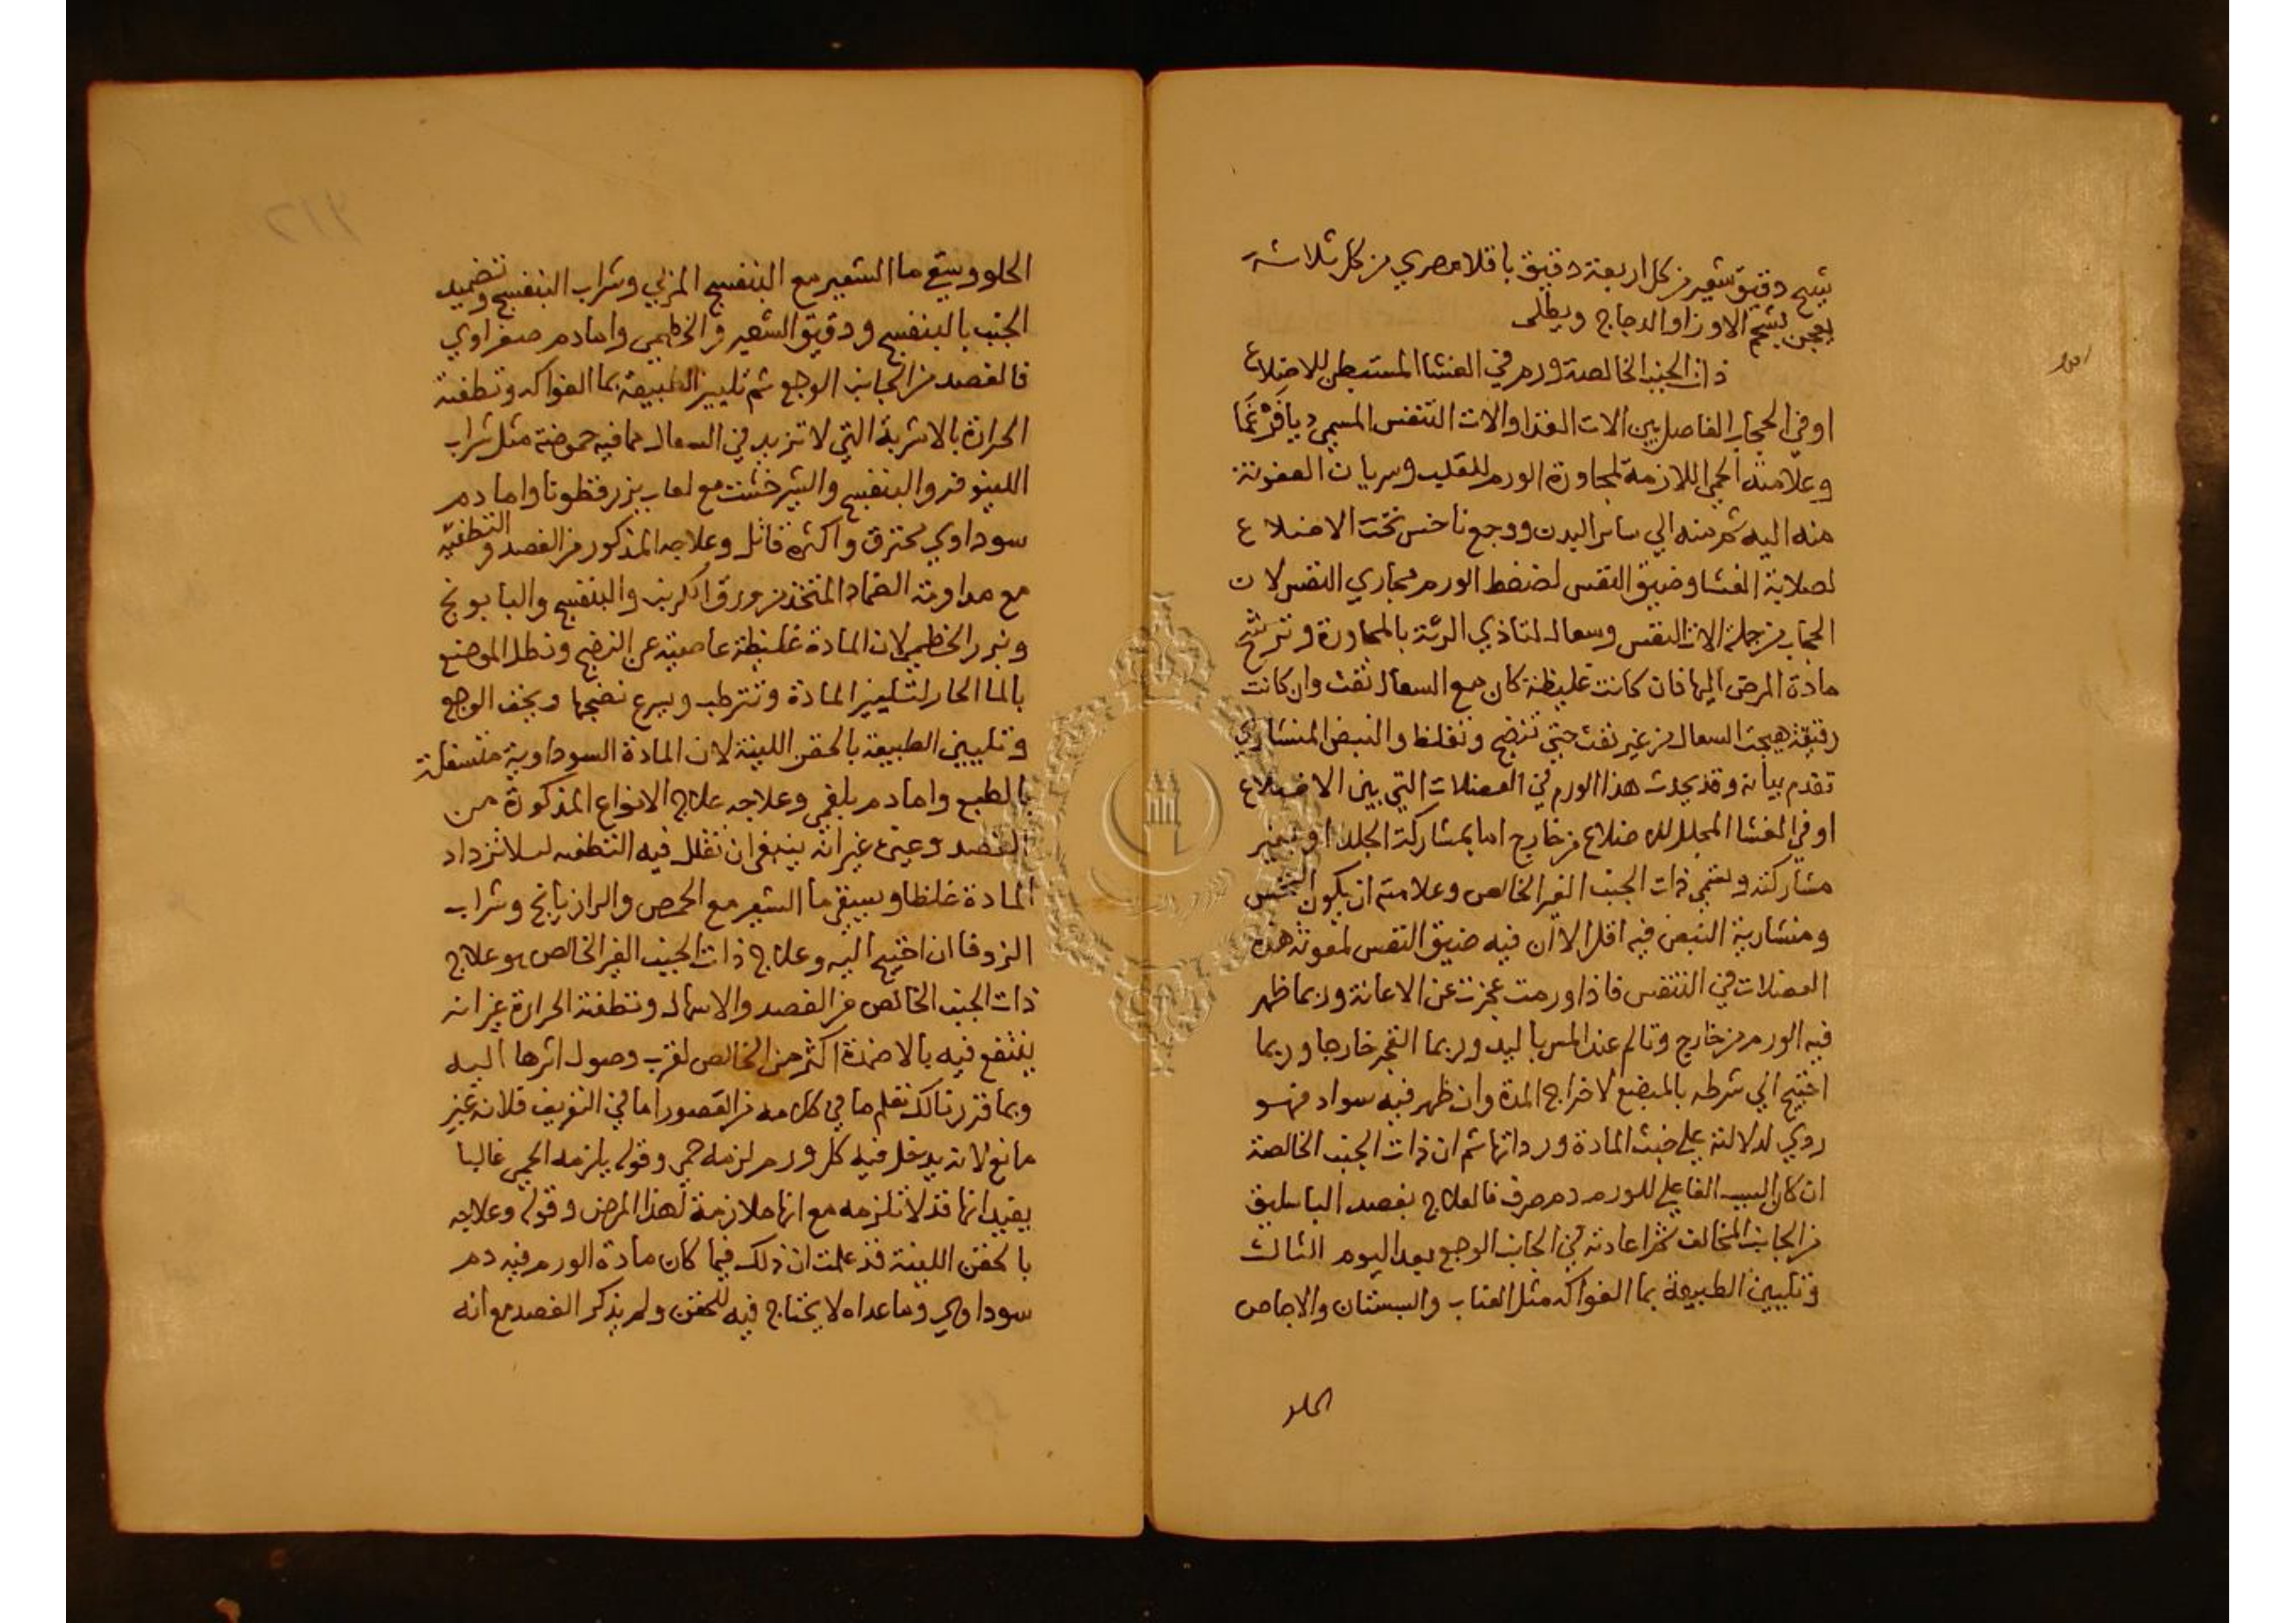 شبح دقيق شعير من كل اربعة دقيق باقلا مصري من كل ثلاثة
يعجن بشحم الاوز او الدجاج ويطلى
ذات الجنب الخالصة ورم في الغشا المستبطن للاضلاع
او في الحجاب الفاصل بين الات الغذا والات التنفس المسمي ديافرغما
وعلامته الحمي اللازمة لمجاورة الورم للقلب وسريان العفونة
منه اليه ثم منه الي سائر البدن ووجع ناخس تحت الاضلاع
لصلابة الغشا وضيق النفس لضغط الورم مجاري النفس لان
الحجاب من جملة الات النفس وسعال لتاذي الرئة بالمجاورة وترشح
مادة المرض اليها فان كانت غليظة كان مع السعال نفث وان كانت
رقيقة هيجت السعال من غير نفث حتي تنضج وتغلظ والنبض المنشاري
تقدم بيانه وقد يحدث هذا الورم في العضلات التي بين الاضلاع
او في الغشا المجلل للاضلاع من خارج اما بمشاركة الجلد او بغير
مشاركته ويسمي ذات الجنب الغير الخالص وعلامته ان يكون النخس
ومنشارية النبض فيه اقل الا ان فيه ضيق النفس لمعونة هذه
العضلات في التنفس فاذا ورمت عجزت عن الاعانة وربما ظهر
فيه الورم من خارج وتالم عند المس باليد وربما انفجر خارجا وربما
احتيج الي شرطه بالمبضع لاخراج المدة وان ظهر فيه سواد فهو
ردي لدلالته علي خبث المادة ورداتها ثم ان ذات الجنب الخالصة
ان كان السبب الفاعلي للورم دم صرف فالعلاج بفصد الباسليق
من الجانب المخالف ثم اعادته في الجانب الوجع بعد اليوم الثالث
وتليين الطبيعة بما الفواكه مثل العناب والسبستان والاجاص
الحلو
الحلو ويسقي ما الشعير مع البنفسج المربي وشراب البنفسج وتضميد
الجنب بالبنفسج ودقيق الشعير والخطمي واما دم صفراوي
فالفصد من الجانب الوجع ثم تليين الطبيعة بما الفواكه وتطفئة
الحرارة بالاشربة التي لا تزيد في السعال مما فيه حموضة مثل شراب
اللينوفر والبنفسج والشيرخشت مع لعاب بزر قطونا واما دم
سوداوي محترق واكثره قاتل وعلاجه المذكور من الفصد والتطفئة
مع مداومة الضماد المتخذ من ورق الكرنب والبنفسج والبابونج
وبزر الخطمي لان المادة غليظة عاصية عن النضج ونطل الموضع
بالما الحار لتليين المادة وترطب ويسرع نضجها ويخف الوجع
وتليين الطبيعة بالحقن اللينة لان المادة السوداوية متسفلة
بالطبع واما دم بلغمي وعلاجه علاج الانواع المذكورة من
الفصد وغيره غير انه ينبغي ان تقلل فيه التطفئه ليلا تزداد
المادة غلظا ويسقي ما الشعير مع الحمص والرازيانج وشراب
الزوفا ان احتيج اليه وعلاج ذات الجنب الغير الخالص هو علاج
ذات الجنب الخالص من الفصد والاسهال وتطفئة الحرارة غير انه
ينتفع فيه بالاضمدة اكثر من الخالص لقرب وصول اثرها اليه
وبما قررنا لك تعلم ما في كلامه من القصور اما في التعريف فلانه غير
مانع لانه يدخل فيه كل ورم لزمه حمي وقوله يلزمه الحمي غالبا
يفيد انها قد لا تلزمه مع انها ملازمة لهذا المرض وقوله وعلاجه
بالحقن اللينة قد علمت ان ذلك فيما كان مادة الورم فيه دم
سوداوي وما عداه لا يحتاج فيه للحقن ولم يذكر الفصد مع انه